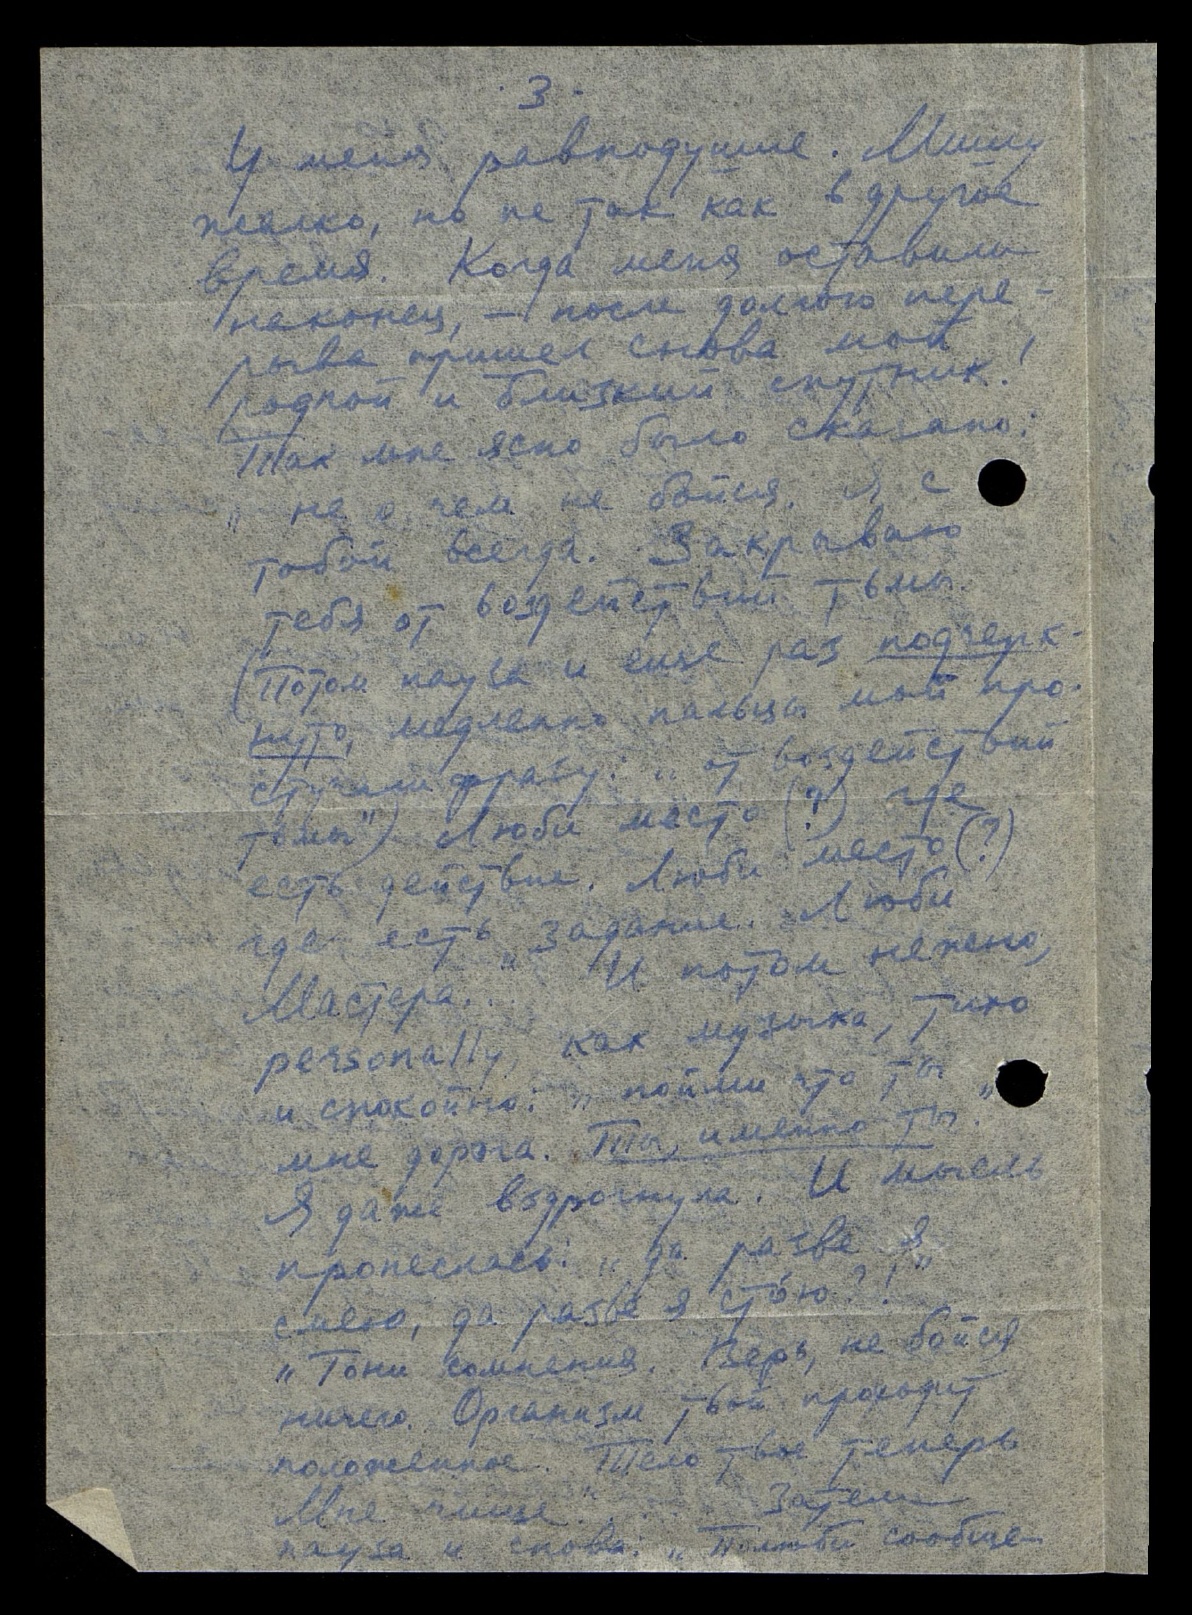 · 3 ·
У меня равнодушие. Мишу
жалко, но не так как в другое
время. Когда меня оставили
наконец, – после долгого пере-
рыва пришел снова мой
родной и близкий спутник!
Так мне ясно было сказано:
„ не о чем не бойся. Я с
тобой всегда. Закрываю
тебя от воздействий тьмы.
(Потом пауза и еще раз подчерк-
нуто, медленно пальцы мои про-
стучали фразу: „ от воздействий
тьмы") Люби место (?) где
есть действие. Люби место (?)
где есть задание. Люби
Мастера..." И потом нежно,
personally, как музыка, тихо
и спокойно: „ пойми что ты
мне дорога. Ты, именно ты."
Я даже вздрогнула. И мысль
пронеслась: „ да разве я
смею, да разве я стóю?!"
„ Гони сомнения. Верь, не бойся
ничего. Организм твой проходит
положенное. Тело твое теперь
Мне чище."..... Затем
пауза и снова: „ Полюби сообще-